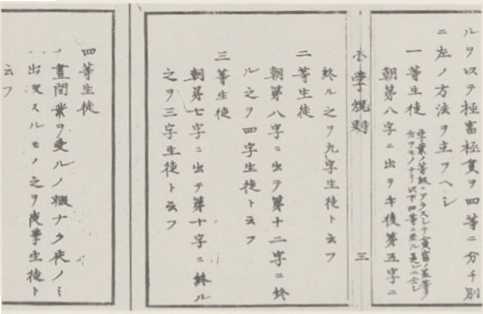 ルヲ以テ極富極貧ヲ四等ニ分チ別
ニ左ノ方法ヲ立ツヘシ
一等生徒
朝第八字ニ出テ午後第五字ニ
小学規則
三
終ル之ヲ九字生徒ト云フ
二等生徒
朝第八字ニ出テ第十二字ニ終
ル之ヲ四字生徒ト云フ
三等生徒
朝第七字ニ出テ第十字ニ終ル
之ヲ三字生徒ト云フ
四等生徒
ノ昼間業ヲ受ルノ暇ナク夜ノミ
出
スルモノ之ヲ夜学生徒ト
云フ